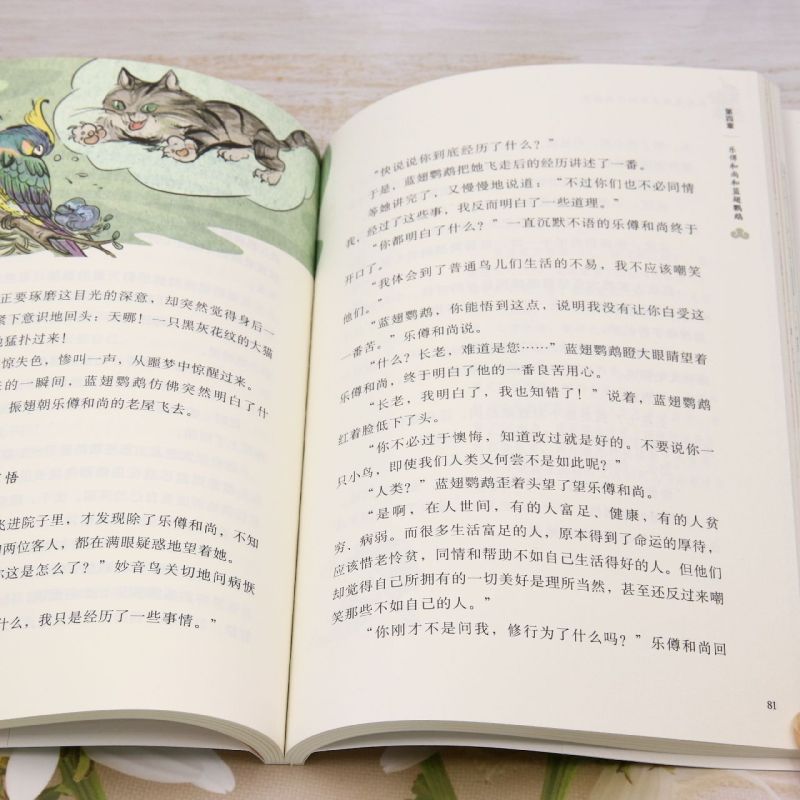 正要琢磨这目光的深意，却突然觉得身后一
下意识地回头：天哪！一只黑灰花纹的大猫
猛扑过来！
惊失色，惨叫一声，从噩梦中惊醒过来。
的一瞬间，蓝翅鹦鹉仿佛突然明白了什
振翅朝乐僔和尚的老屋飞去。
悟
进院子里，才发现除了乐僔和尚，不知
两位客人，都在满眼疑惑地望着她。
你这是怎么了？”妙音鸟关切地问病恹
什么，我只是经历了一些事情。”
第四章 乐僔和尚和蓝翅鹦鹉
“快说说你到底经历了什么？”
于是，蓝翅鹦鹉把她飞走后的经历讲述了一番。
等她讲完了，又慢慢地说道：“不过你们也不必同情
我，经过了这些事，我反而明白了一些道理。”
“你都明白了什么？”一直沉默不语的乐僔和尚终于
开口了。
“我体会到了普通鸟儿们生活的不易，我不应该嘲笑
他们。”
“蓝翅鹦鹉，你能悟到这点，说明我没有让你白受这
一番苦。”乐僔和尚说。
“什么？长老，难道是您……”蓝翅鹦鹉瞪大眼睛望着
乐僔和尚，终于明白了他的一番良苦用心。
“长老，我明白了，我也知错了！”说着，蓝翅鹦鹉
红着脸低下了头。
“你不必过于懊悔，知道改过就是好的。不要说你一
只小鸟，即使我们人类又何尝不是如此呢？”
“人类？”蓝翅鹦鹉歪着头望了望乐僔和尚。
“是啊，在人世间，有的人富足、健康，有的人贫
穷、病弱。而很多生活富足的人，原本得到了命运的厚待，
应该惜老怜贫，同情和帮助不如自己生活得好的人。但他们
却觉得自己所拥有的一切美好是理所当然，甚至还反过来嘲
笑那些不如自己的人。”
“你刚才不是问我，修行为了什么吗？”乐僔和尚回
81